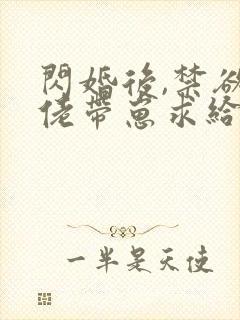 閃婚後,禁欲
佬帶崽求給
一半是天使